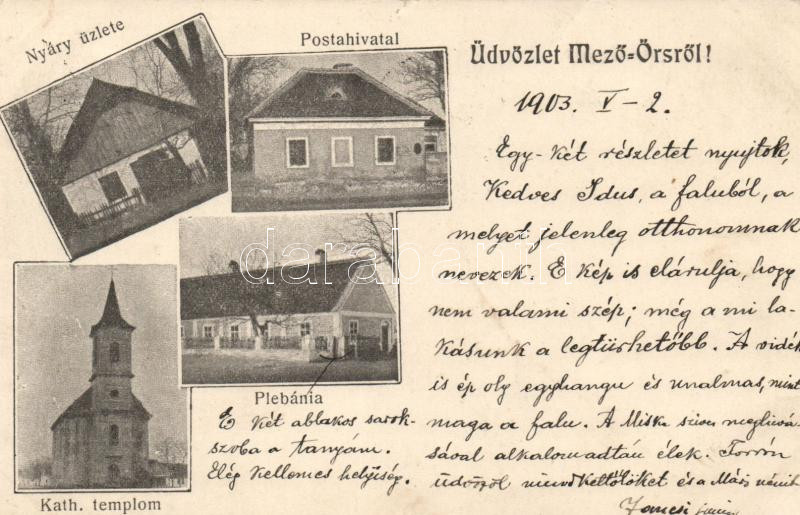 Nyáry üzlete
Postahivatal
Üdvözlet Mező-Örsről!
1903. V-2.
Egy-két részletet nyujtok,
Kedves Idus, a faluból, a
melyet jelenleg otthonomnak
nevezek. E kép is elárulja, hogy
nem valami szép; még a mi la-
kásunk a legtürhetőbb. A vidék
is ép oly egyhangu és unalmas, mint
maga a falu. A Miska szives meghivá-
sával alkalomadtán élek. Forrón
üdvözöl mindkettőtöket és a
Jancsi
Plebánia
E két ablakos sarok-
szoba a tanyám.
Elég kellemes helyiség.
Kath. templom
darabanth